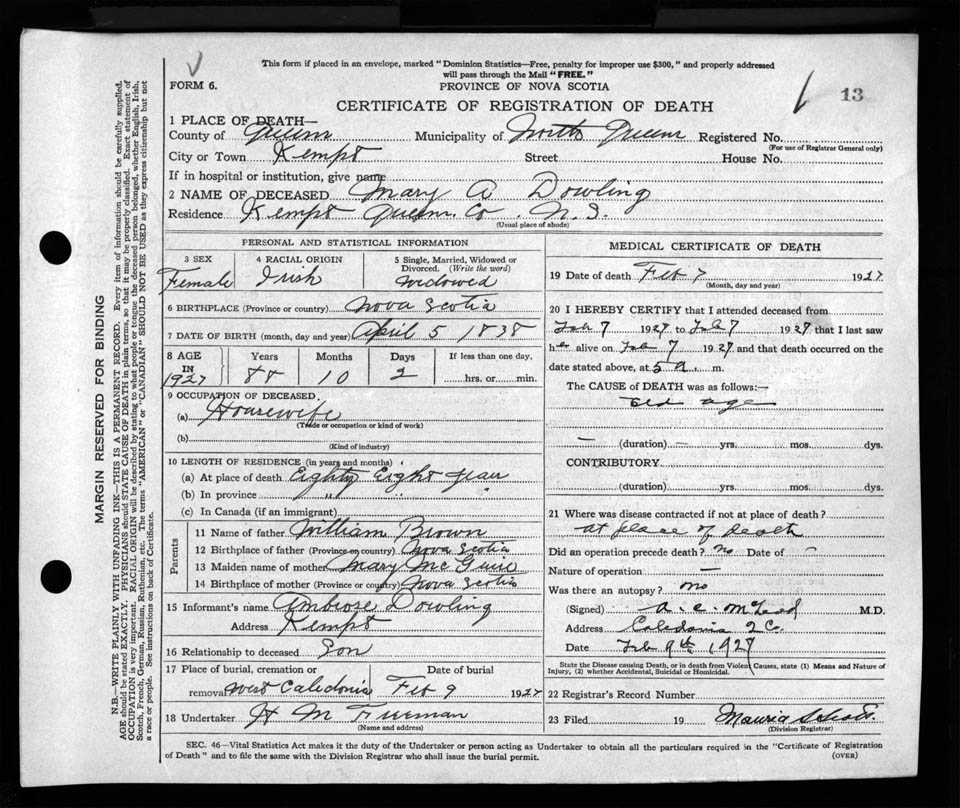 This form if placed in an envelope, marked "Dominion Statistics—Free, penalty for improper use $300," and properly addressed
will pass through the Mail "FREE."
FORM 6.
PROVINCE OF NOVA SCOTIA
CERTIFICATE OF REGISTRATION OF DEATH
13
1 PLACE OF DEATH—
County of Queens Municipality of North Queens Registered No.
(For use of Registrar General only)
City or Town Kempt Street House No.
If in hospital or institution, give name
2 NAME OF DECEASED Mary A Dowling
Residence Kempt Queens Co. N.S.
(Usual place of abode)
PERSONAL AND STATISTICAL INFORMATION
3 SEX 4 RACIAL ORIGIN 5 Single, Married, Widowed or
Divorced. (Write the word)
Female Irish Widowed
6 BIRTHPLACE (Province or country) Nova Scotia
7 DATE OF BIRTH (month, day and year) April 5 1838
8 AGE Years Months Days If less than one day,
IN
1927 88 10 2 hrs. or min.
9 OCCUPATION OF DECEASED
(a) Housewife
(Trade or occupation or kind of work)
(b)
(Kind of industry)
10 LENGTH OF RESIDENCE (in years and months)
(a) At place of death Eighty Eight year
(b) In province " " "
(c) In Canada (if an immigrant)
Parents
11 Name of father William Brown
12 Birthplace of father (Province or country) Nova Scotia
13 Maiden name of mother Mary McGuire
14 Birthplace of mother (Province or country) Nova Scotia
15 Informant's name Ambrose Dowling
Address Kempt
16 Relationship to deceased Son
17 Place of burial, cremation or Date of burial
removal West Caledonia Feb 9 1927
18 Undertaker H M Freeman
(Name and address)
MEDICAL CERTIFICATE OF DEATH
19 Date of death Feb 7 1927
(Month, day and year)
20 I HEREBY CERTIFY that I attended deceased from
Feb 7 1927 to Feb 7 1927 that I last saw
her alive on Feb 7 1927 and that death occurred on the
date stated above, at 5 a. m.
The CAUSE of DEATH was as follows:—
old age
— (duration) — yrs. mos. dys.
CONTRIBUTORY
(duration) yrs. mos. dys.
21 Where was disease contracted if not at place of death?
at place of death
Did an operation precede death? no Date of —
Nature of operation —
Was there an autopsy? no
(Signed) A. C. McLeod M.D.
Address Caledonia Q C.
Date Feb 9th 1927
State the Disease causing Death, or in death from Violent Causes, state (1) Means and Nature of
Injury, (2) whether Accidental, Suicidal or Homicidal.
22 Registrar's Record Number
23 Filed 19
(Division Registrar)
SEC. 46—Vital Statistics Act makes it the duty of the Undertaker or person acting as Undertaker to obtain all the particulars required in the "Certificate of Registration
of Death" and to file the same with the Division Registrar who shall issue the burial permit.
(OVER)
MARGIN RESERVED FOR BINDING
N.B.—WRITE PLAINLY WITH UNFADING INK—THIS IS A PERMANENT RECORD. Every item of information should be carefully supplied.
AGE should be stated EXACTLY. PHYSICIANS should STATE CAUSE OF DEATH in plain terms, so that it may be properly classified. Exact statement of
OCCUPATION is very important. RACIAL ORIGIN will be described by stating to what people or tongue the deceased person belonged, whether English, Irish,
Scotch, French, German, Russian, Ruthenian, etc. The terms "AMERICAN" or "CANADIAN" SHOULD NOT BE USED as they express citizenship but not
a race or people. See instructions on back of Certificate.